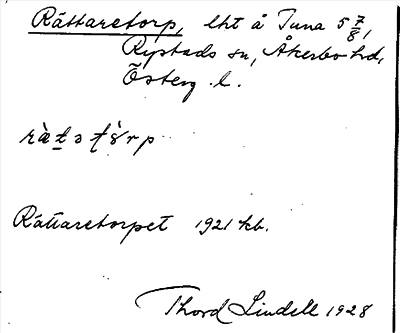 Rättaretorp, lht å Tuna 5 7/8,
Rystads sn, Åkerbo hd,
Österg. l.
ràtətòrp
Rättaretorpet 1921 kb.
Thord Lindell 1928